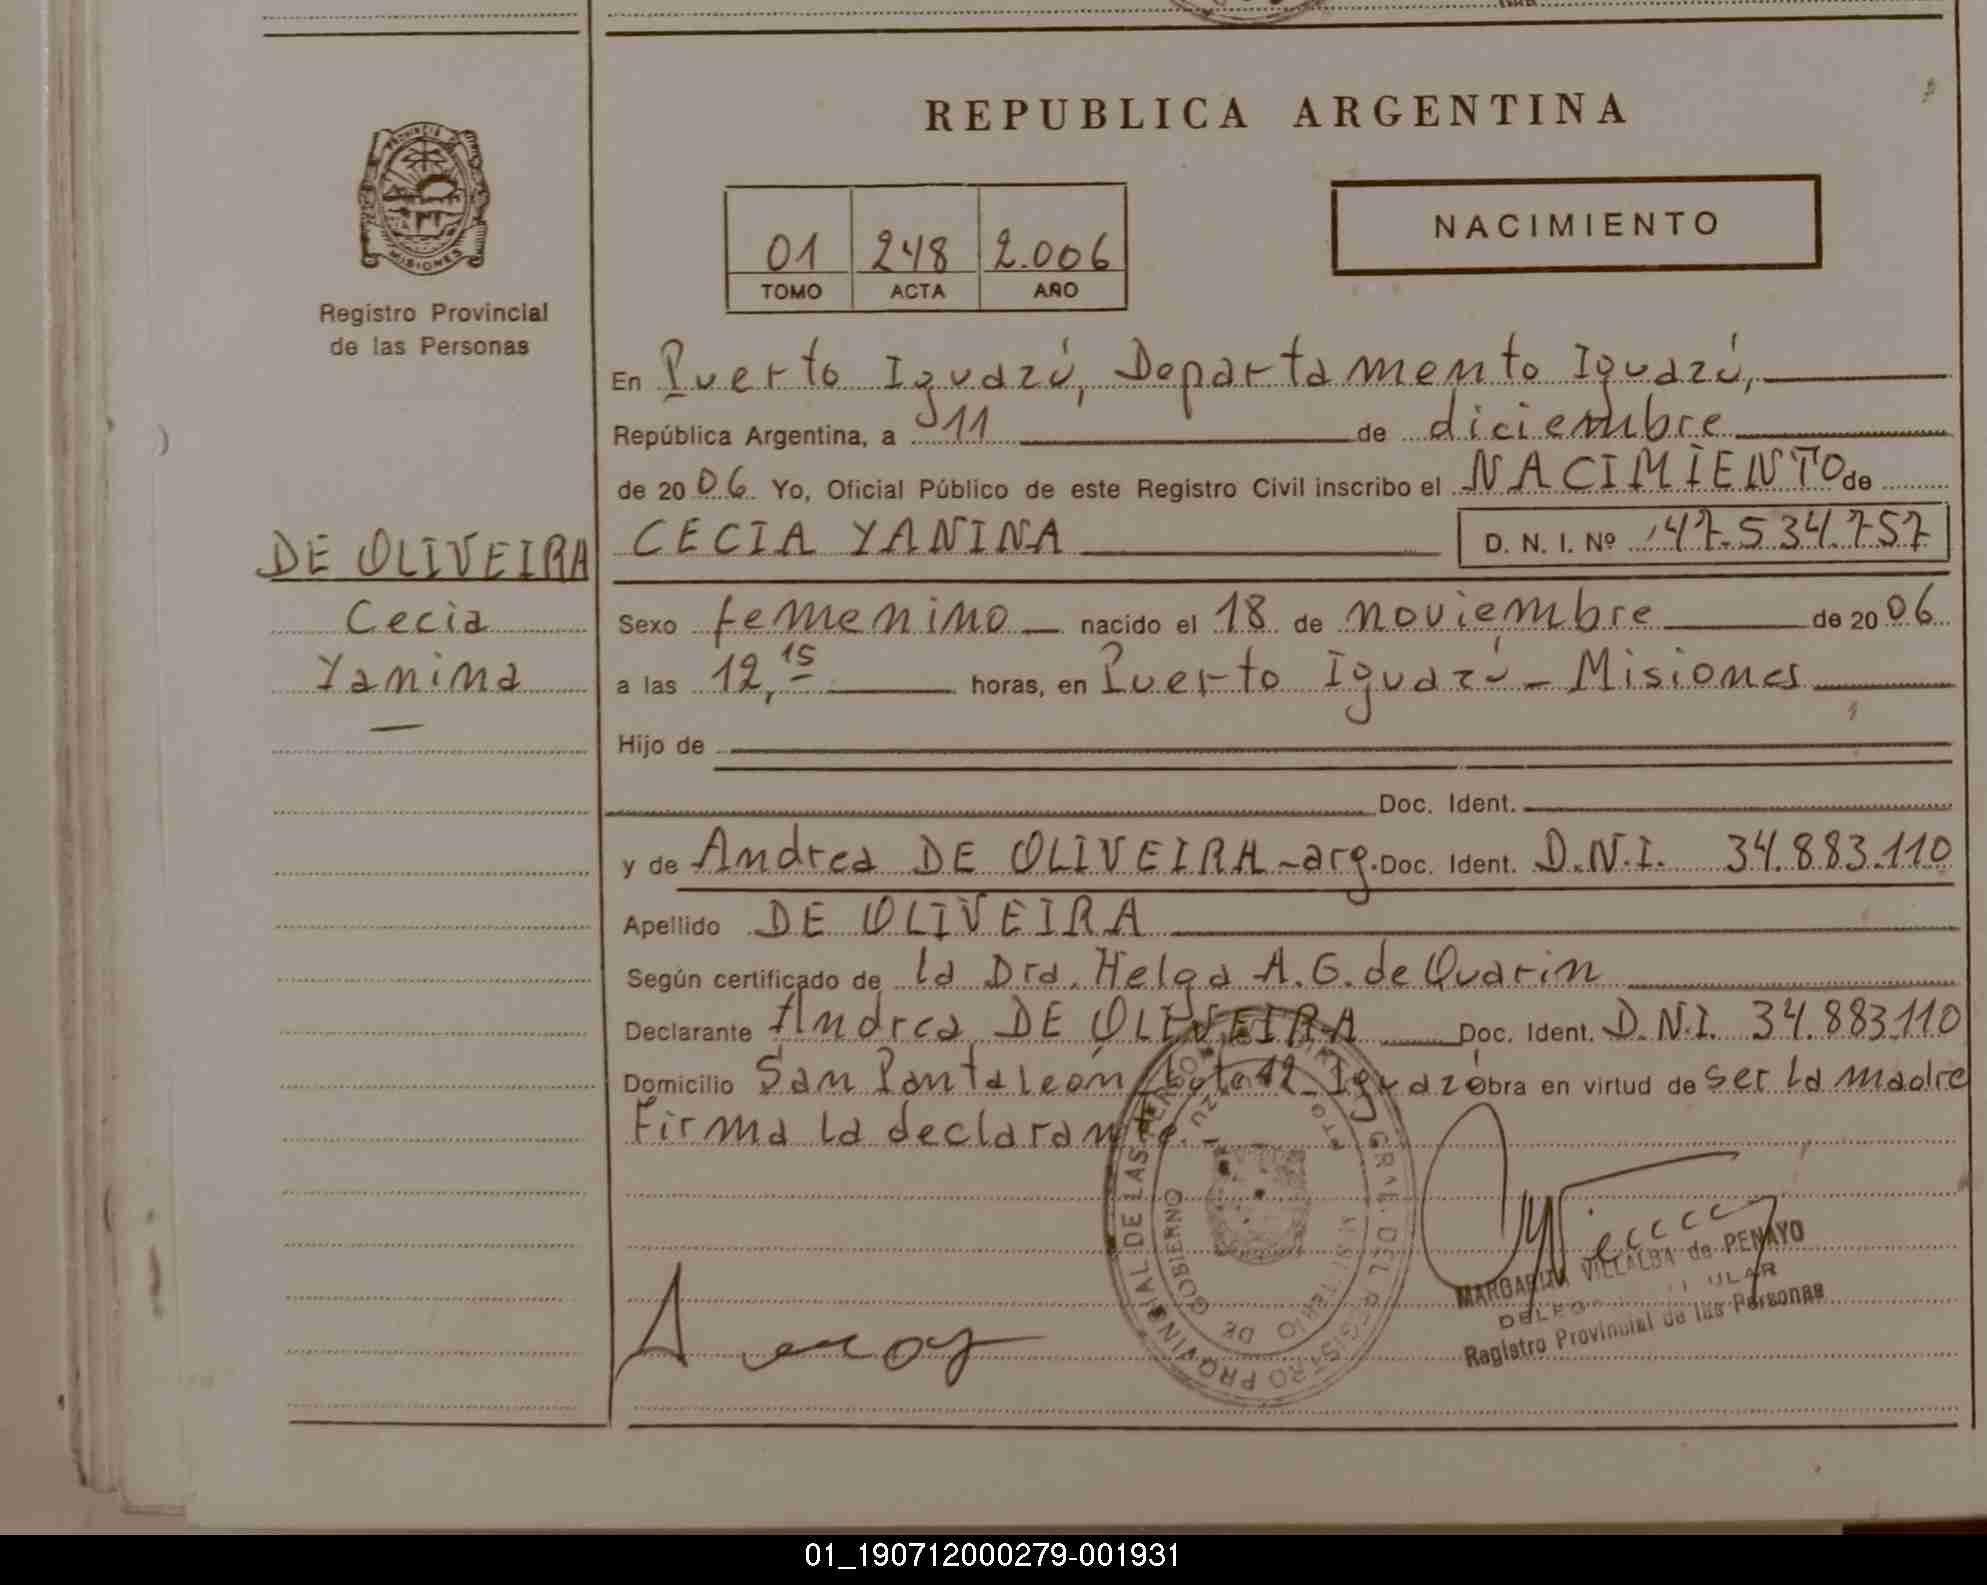 REPUBLICA ARGENTINA
PROVINCIA DE
MISIONES
Registro Provincial
de las Personas
01 248 2.006
TOMO ACTA AÑO
NACIMIENTO
En Puerto Iguazú, Departamento Iguazú,
República Argentina, a 11 de diciembre
de 2006. Yo, Oficial Público de este Registro Civil inscribo el NACIMIENTO de
CECIA YANINA D. N. I. Nº 47.534.757
DE OLIVEIRA
Cecia
Yanina
Sexo femenino nacido el 18 de noviembre de 2006.
a las 12,15 horas, en Puerto Iguazú - Misiones
Hijo de
Doc. Ident.
y de Andrea DE OLIVEIRA - arg. Doc. Ident. D.N.I. 34.883.110
Apellido DE OLIVEIRA
Según certificado de la Dra. Helga A. G. de Quarin
Declarante Andrea DE OLIVEIRA Doc. Ident. D.N.I. 34.883.110
Domicilio San Pantaleón Lote 12 Iguazú obra en virtud de ser la madre
Firma la declarante. -
GRAL. DEL REGISTRO PROVINCIAL DE LAS PERSONAS
MINISTERIO DE GOBIERNO
PTO. IGUAZU
MARGARITA VILLALBA de PENAYO
Registro Provincial de las Personas
01_190712000279-001931